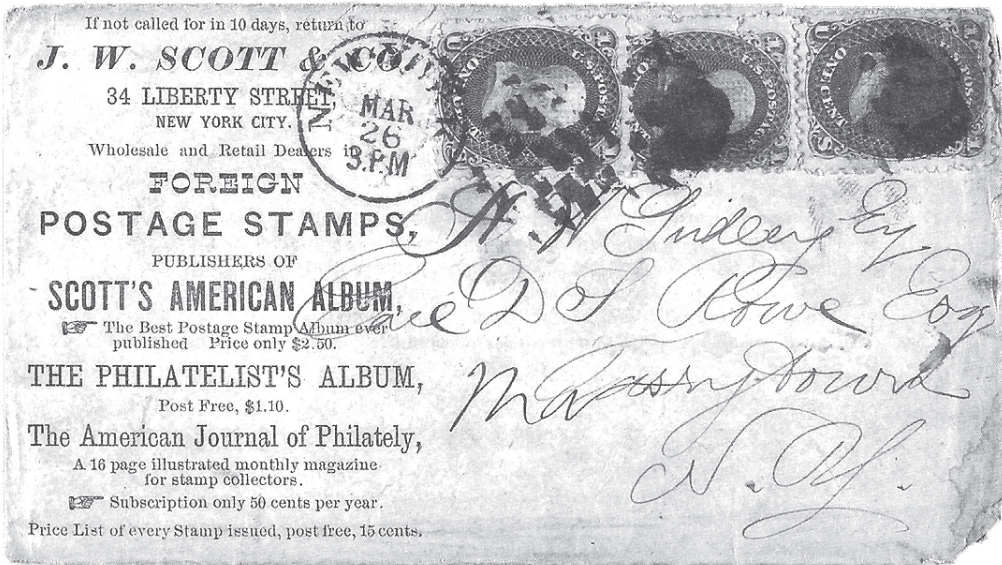 If not called for in 10 days, return to
J. W. SCOTT & CO.
34 LIBERTY STREET,
NEW YORK CITY.
Wholesale and Retail Dealers in
FOREIGN
POSTAGE STAMPS,
PUBLISHERS OF
SCOTT'S AMERICAN ALBUM,
☞ The Best Postage Stamp Album ever
published Price only $2.50.
THE PHILATELIST'S ALBUM,
Post Free, $1.10.
The American Journal of Philately,
A 16 page illustrated monthly magazine
for stamp collectors.
☞ Subscription only 50 cents per year.
Price List of every Stamp issued, post free, 15 cents.
NEW YORK
MAR
26
3.P.M
U.S. POSTAGE
U.S. POSTAGE
U.S. POSTAGE
H W
Care D S Rowe Esq
N. Y.